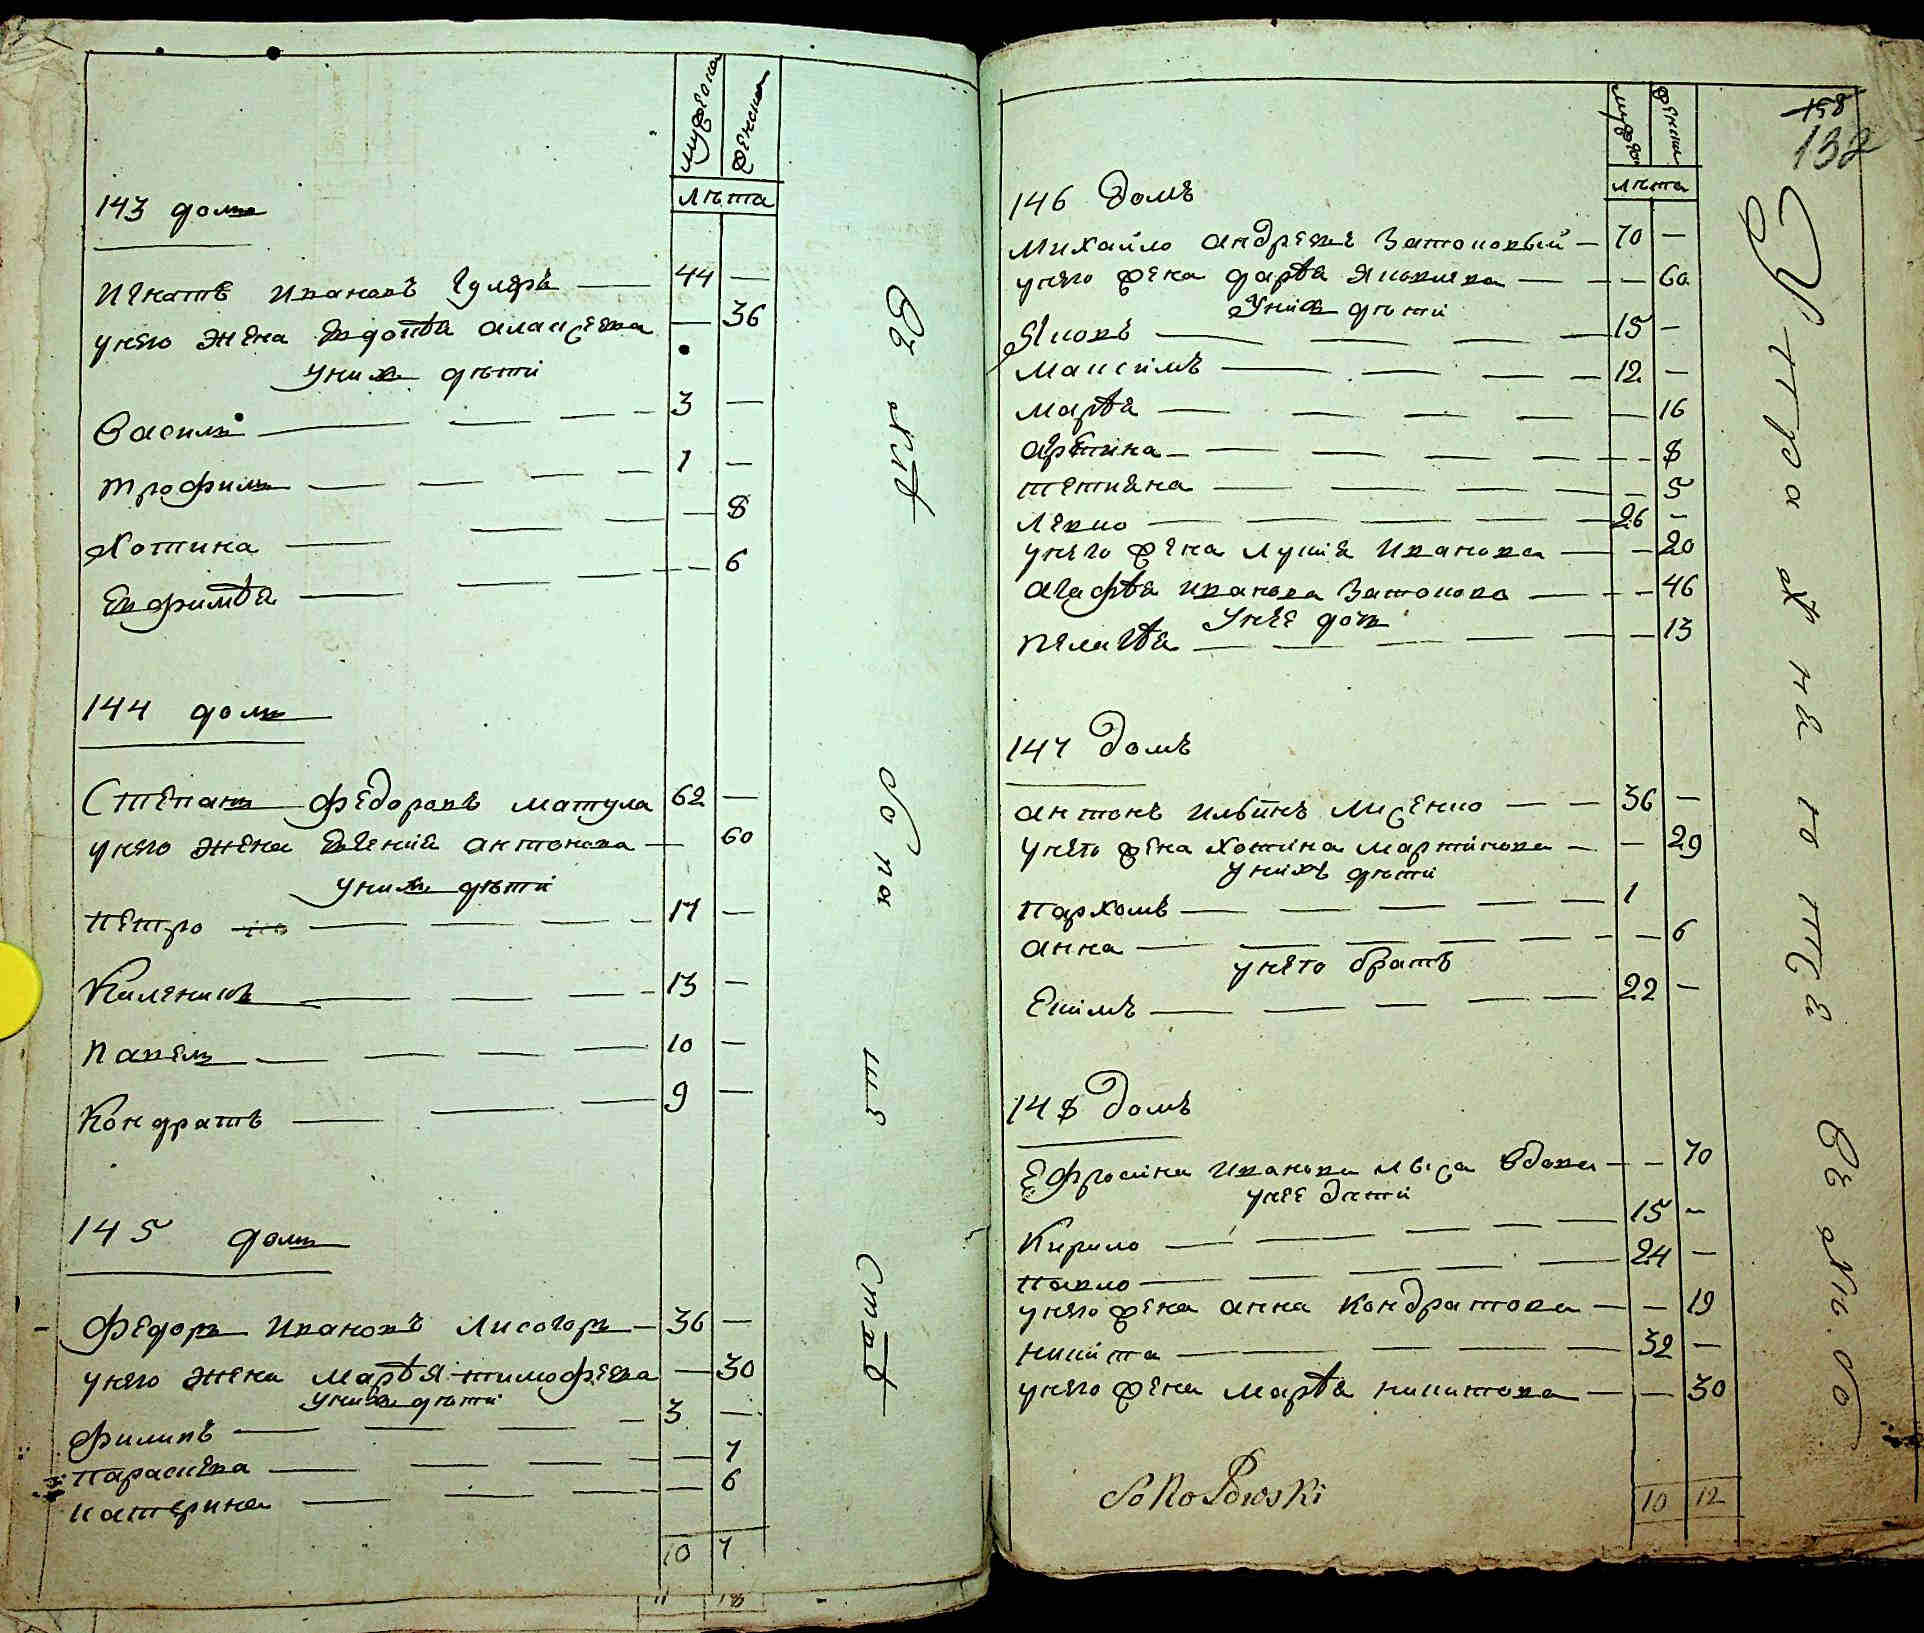 мужеска женска
лѣта
143 домъ
Игнатъ Ивановъ Гуляръ 44 —
унего жена Евдокѣя Алексѣева — 36
уних дѣти
Василь 3 —
Трофимъ 1 —
Хотина — 8
Евфимѣя — 6
144 домъ
Степанъ Федоровъ Матула 62 —
унего жена Евгения Антонова — 60
уних дѣти
Петро 17 —
Каленикъ 13 —
Павелъ 10 —
Кондратъ 9 —
145 домъ
Федоръ Ивановъ Лисогоръ 36 —
унего жена Марѣя Тимофеева — 30
уних дѣти
Филипъ 3 —
Параскева — 7
Катерина — 6
10 7
11 18
мужеска женска
лѣта
158
132
146 домъ
Михайло Андреевъ Затоковый 70 —
унего жена Дарѣя Яковлева — 60
Уних дѣти
Яковъ 15 —
Максимъ 12 —
Марѣя — 16
Тетияна — 5
Левко 26 —
унего жена Лукия Иванова — 20
Агафѣя Иванова Затокова — 46
Унее дочь
Пелагѣя — 13
147 домъ
Антонъ Ильинъ Лисенко 36 —
унего жена Хотина Мартинова — 29
унихъ дѣти
Пархомъ 1
Анна — 6
унего братъ
Екимъ 22 —
148 домъ
Ефросина Иванова Лыса вдова — 70
унее дѣти
Кирило 15 —
Павло 24 —
унего жена Анна Кондратова — 19
Никита 32 —
унего жена Марѣя Никитова — 30
SoKoŁowski
10 12